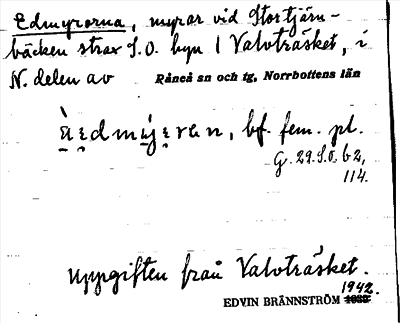 Edmyrorna, myrar vid Stortjärn-
bäcken strax S.O. byn 1 Valvträsket, i
N. delen av Råneå sn och tg, Norrbottens län
bf. fem. pl.
G. 29. S.O. b2,
114.
Uppgiften från Valvträsket.
1942.
EDVIN BRÄNNSTRÖM